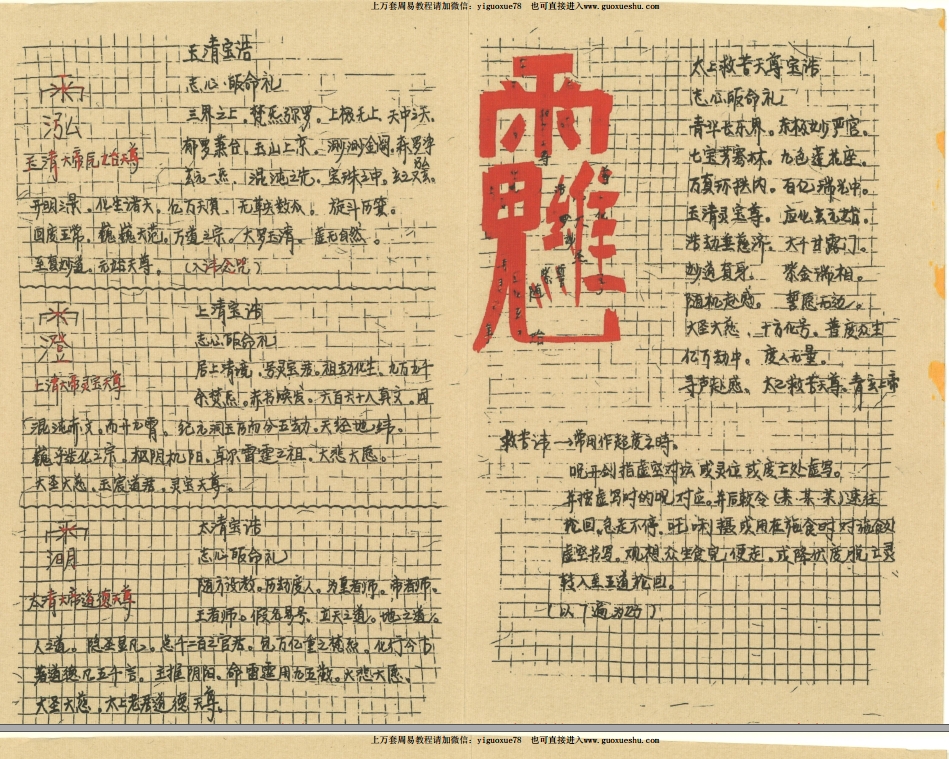 上万套周易教程请加微信：yiguoxue78 也可直接进入www.guoxueshu.com
玉清宝诰
志心皈命礼
三界之上，梵炁弥罗。上极无上，天中之天。
郁罗萧台，玉山上京。渺渺金阙，森罗净
玄元一炁，混沌之先。宝珠之中，玄之又玄。
开明三景，化生诸天。亿万天真，无鞅数众。旋斗历箕。
回度五常。巍巍大范，万道之宗。大罗玉清。虚无自然。
至真妙道。元始天尊。
泓
玉清大帝元始天尊
上清宝诰
志心皈命礼
居上清境，号灵宝君。祖劫化生，九万九千
余梵炁。赤书焕发，六百六十八真文。因
混沌赤文，而开九霄。纪元洞玉历而分五劫。天经地纬。
巍乎造化之宗。枢阴机阳，卓尔雷霆之祖。大悲大愿。
大圣大慈。玉宸道君，灵宝天尊。
澄
上清大帝灵宝天尊
太清宝诰
志心皈命礼
随方设教。历劫度人。为皇者师。帝者师。
王者师。假名易号。立天之道。地之道。
人之道。隐圣显凡。总千二百之官君。包万亿重之梵炁。化行今古
著道德凡五千言。主握阴阳。命雷霆用九五数。大悲大愿。
大圣大慈。太上老君道德天尊。
太清大帝道德天尊
太上救苦天尊宝诰
志心皈命礼
青华长乐界。东极妙严宫。
七宝芳骞林。九色莲花座。
万真环拱内。百亿瑞光中。
玉清灵宝尊。应化玄元始。
浩劫垂慈济。大千甘露门。
妙道真身。紫金瑞相。
随机赴感。誓愿无边。
大圣大慈。十方化号。普度众生
亿万劫中。度人无量。
寻声赴感。太乙救苦天尊。青玄上帝
救苦讳→常用作超度之时。
呪开剑指虚空对坛或灵位或度亡处虚写。
并按虚写时的呪对应。并后敕令（某某某）速往
轮回，急走不停。或用在施食时对施食处
虚空书写。观想众生食完便走。或降伏度脱亡灵
转入至五道轮回。
（以7遍为好）
上万套周易教程请加微信：yiguoxue78 也可直接进入www.guoxueshu.com